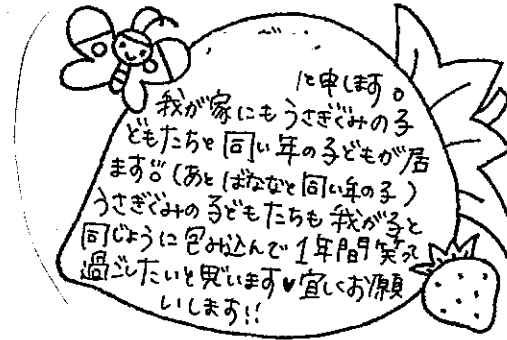 と申します。
我が家にもうさぎぐみの子
どもたちと同い年の子どもが居
ます。(あと ばななと同い年の子)
うさぎぐみの子どもたちも我が子と
同じように包み込んで1年間笑って
過ごしたいと思います♥宜しくお願
いします!!